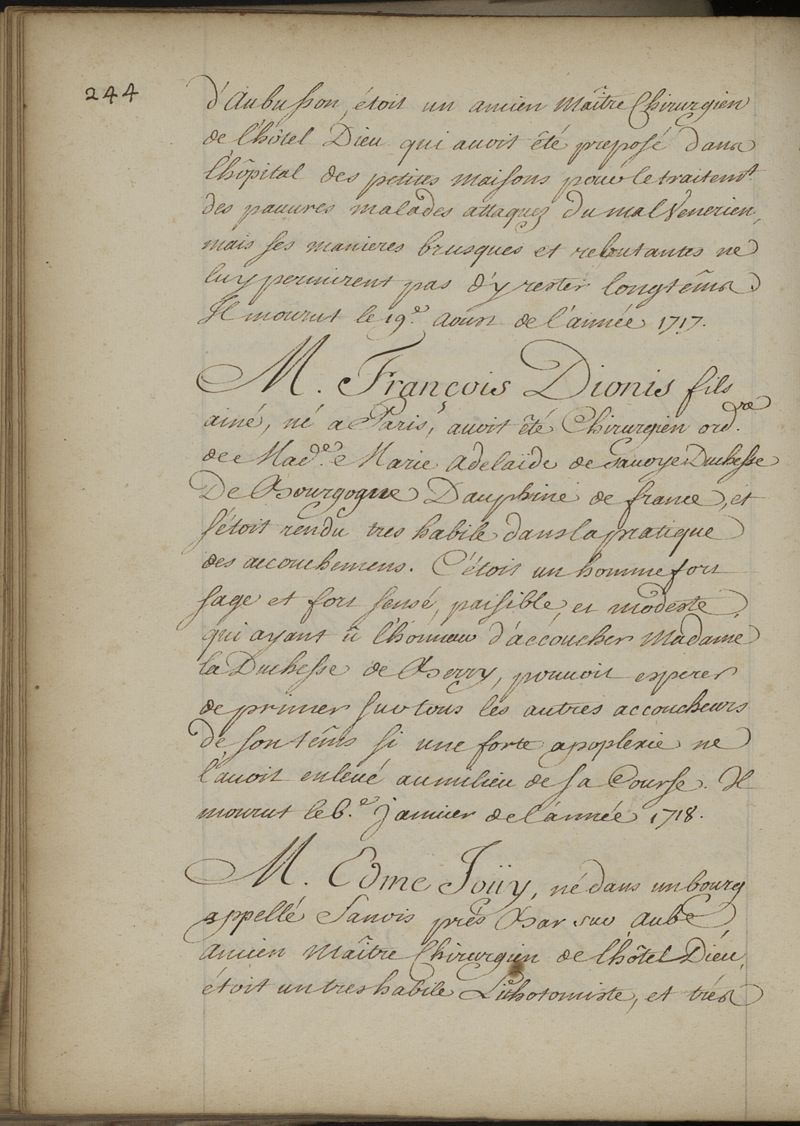 244
d'Aubusson, étoit un ancien Maître Chirurgien
de l'hôtel Dieu qui avoit êté preposé dans
l'hôpital des petites maisons pour le traitem.t
des pauvres malades attaquez du mal Venerien,
mais ses manieres brusques et rebutantes ne
luy permirent pas d'y rester longtêms.
Il mourut le 19.e Aoust de l'année 1717.
M. François Dionis fils
ainé, né a Paris, avoit êté Chirurgien ord.re
de Mad.e Marie Adelaïde de Savoye Duchesse
De Bourgogne Dauphine de france, et
s'étoit rendu tres habile dans la pratique
des accouchemens. C'étoit un homme fort
sage et fort sensé, paisible et modeste,
qui ayant û l'honneur d'accoucher Madame
la Duchesse de Berry, pouvoit esperer
de primer sur tous les autres accoucheurs
de son têms si une forte apoplexie ne
l'avoit enlevé au milieu de sa Course. Il
mourut le 6.e janvier de l'année 1718.
M. Edme Joüy, né dans un bourg
appellé Sanois prés Bar sur Aube
ancien Maître Chirurgien de l'hôtel Dieu,
étoit un tres habile Lithotomiste, et trés